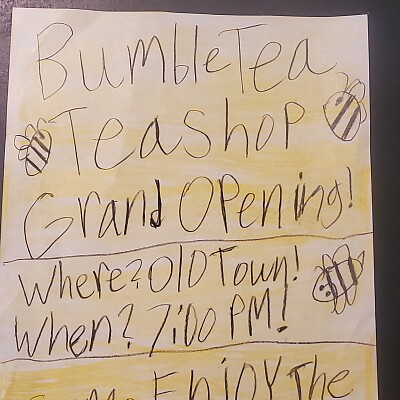 BumbleTea
Teashop
Grand Opening!
Where? Old Town!
When? 7:00 PM!
Enjoy The